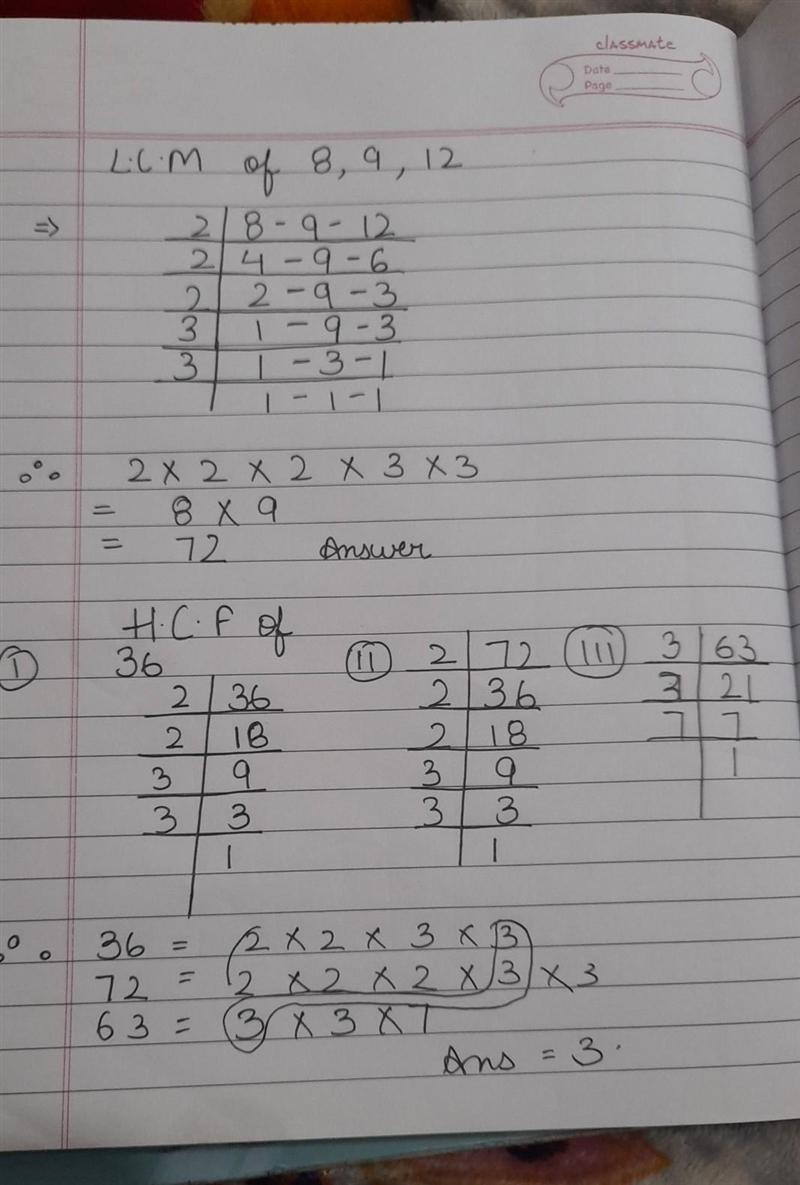 classmate
Date
Page
L.C.M of 8, 9, 12
⇒ 2 | 8 - 9 - 12
2 | 4 - 9 - 6
2 | 2 - 9 - 3
3 | 1 - 9 - 3
3 | 1 - 3 - 1
| 1 - 1 - 1
∴ 2 × 2 × 2 × 3 × 3
= 8 × 9
= 72 Answer
H.C.F of
(I) 36
2 | 36
2 | 18
3 | 9
3 | 3
| 1
(II) 2 | 72
2 | 36
2 | 18
3 | 9
3 | 3
| 1
(III) 3 | 63
3 | 21
7 | 7
| 1
∴ 36 = 2 × 2 × 3 × 3
72 = 2 × 2 × 2 × 3 × 3
63 = 3 × 3 × 7
Ans = 3.